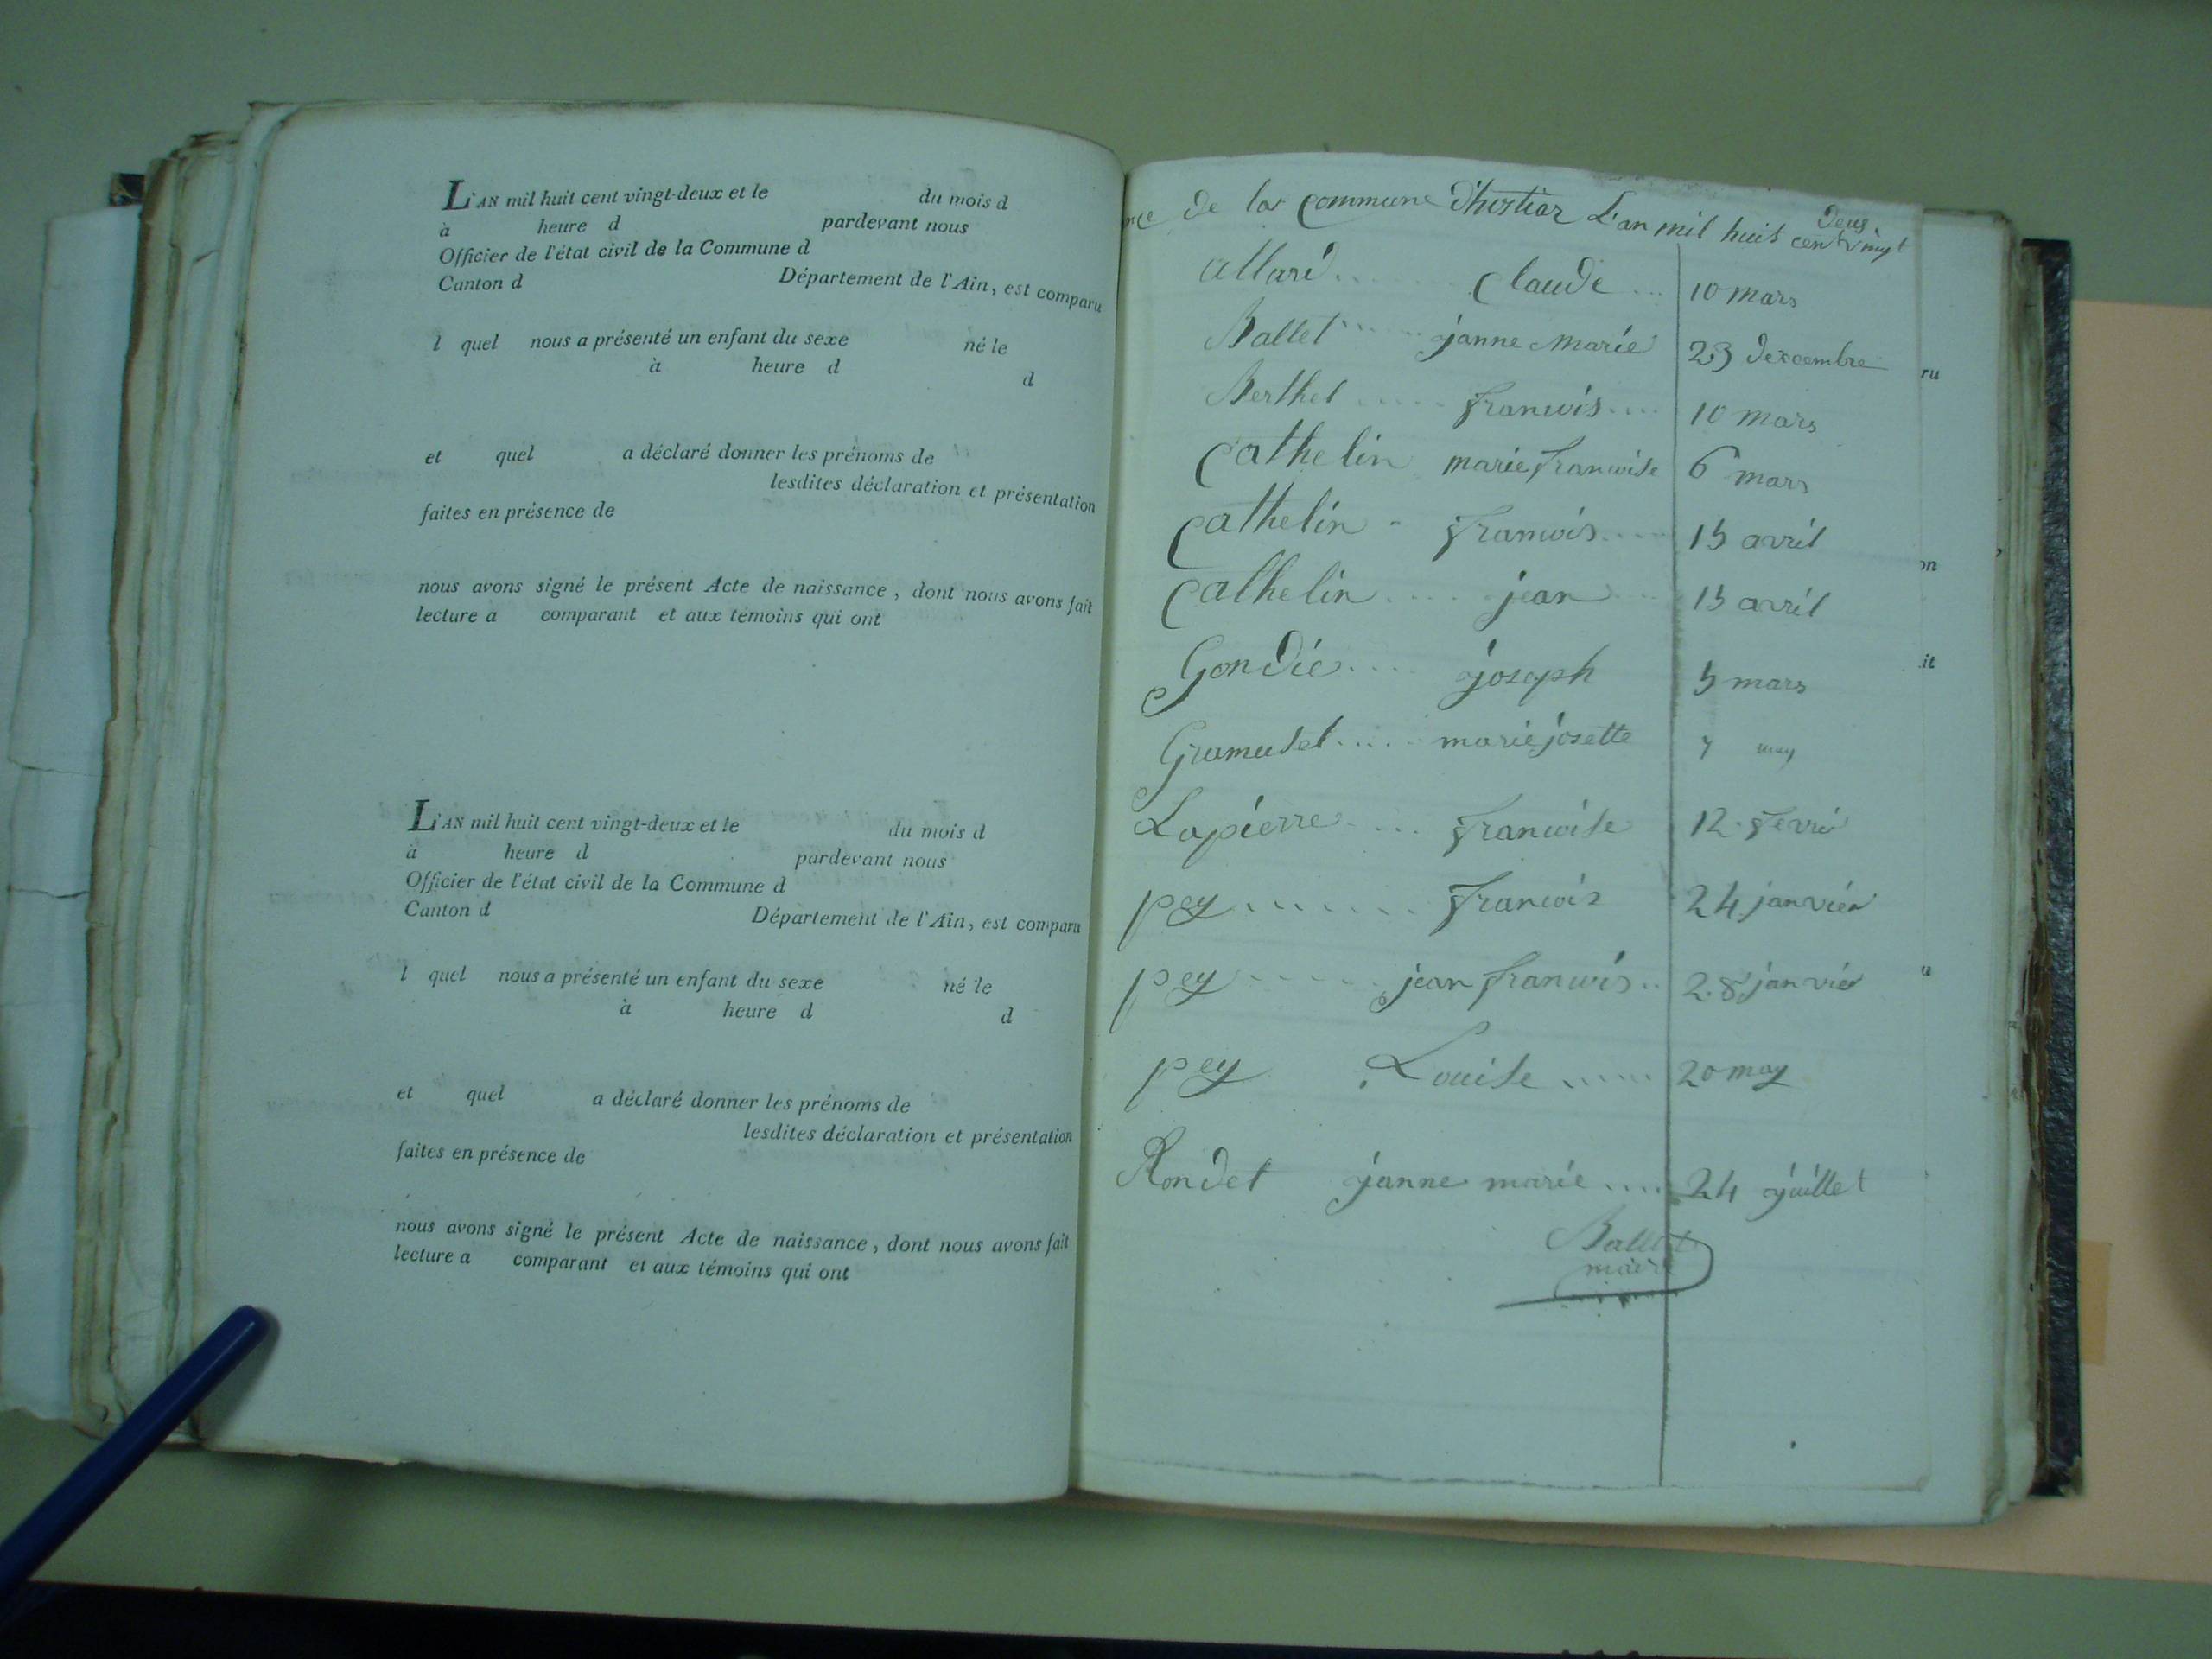 L'AN mil huit cent vingt-deux et le du mois d
à heure d pardevant nous
Officier de l'état civil de la Commune d
Canton d Département de l'Ain, est comparu
l quel nous a présenté un enfant du sexe né le
à heure d d
et quel a déclaré donner les prénoms de
lesdites déclaration et présentation
faites en présence de
nous avons signé le présent Acte de naissance, dont nous avons fait
lecture a comparant et aux témoins qui ont
L'AN mil huit cent vingt-deux et le du mois d
à heure d pardevant nous
Officier de l'état civil de la Commune d
Canton d Département de l'Ain, est comparu
l quel nous a présenté un enfant du sexe né le
à heure d d
et quel a déclaré donner les prénoms de
lesdites déclaration et présentation
faites en présence de
nous avons signé le présent Acte de naissance, dont nous avons fait
lecture a comparant et aux témoins qui ont
nce de la commune d'hostiaz L'an mil huit cent vingt deux
allard..... Claude... 10 mars
Ballet..... janne marie 23 dexcembre
Berthet..... francois.... 10 mars
Cathelin marie francoise 6 mars
Cathelin - francois..... 15 avril
Cathelin.... jean.... 15 avril
Gondie.... joseph 5 mars
Gramusel..... marie josette 7 may
Lapierre.... francoise 12 fevrié
pey....... francois 24 janvier
pey...... jean francois.. 28 janvier
pey Louise..... 20 may
Rondet janne marie.... 24 juillet
Ballet
maire
ru
on
it
u